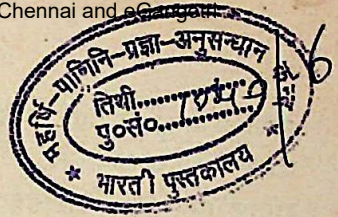 Chennai and eGangotri
महर्षि-पाणिनि-प्रज्ञा-अनुसन्धान
तिथी..............
पु०सं०..............
* भारती पुस्तकालय